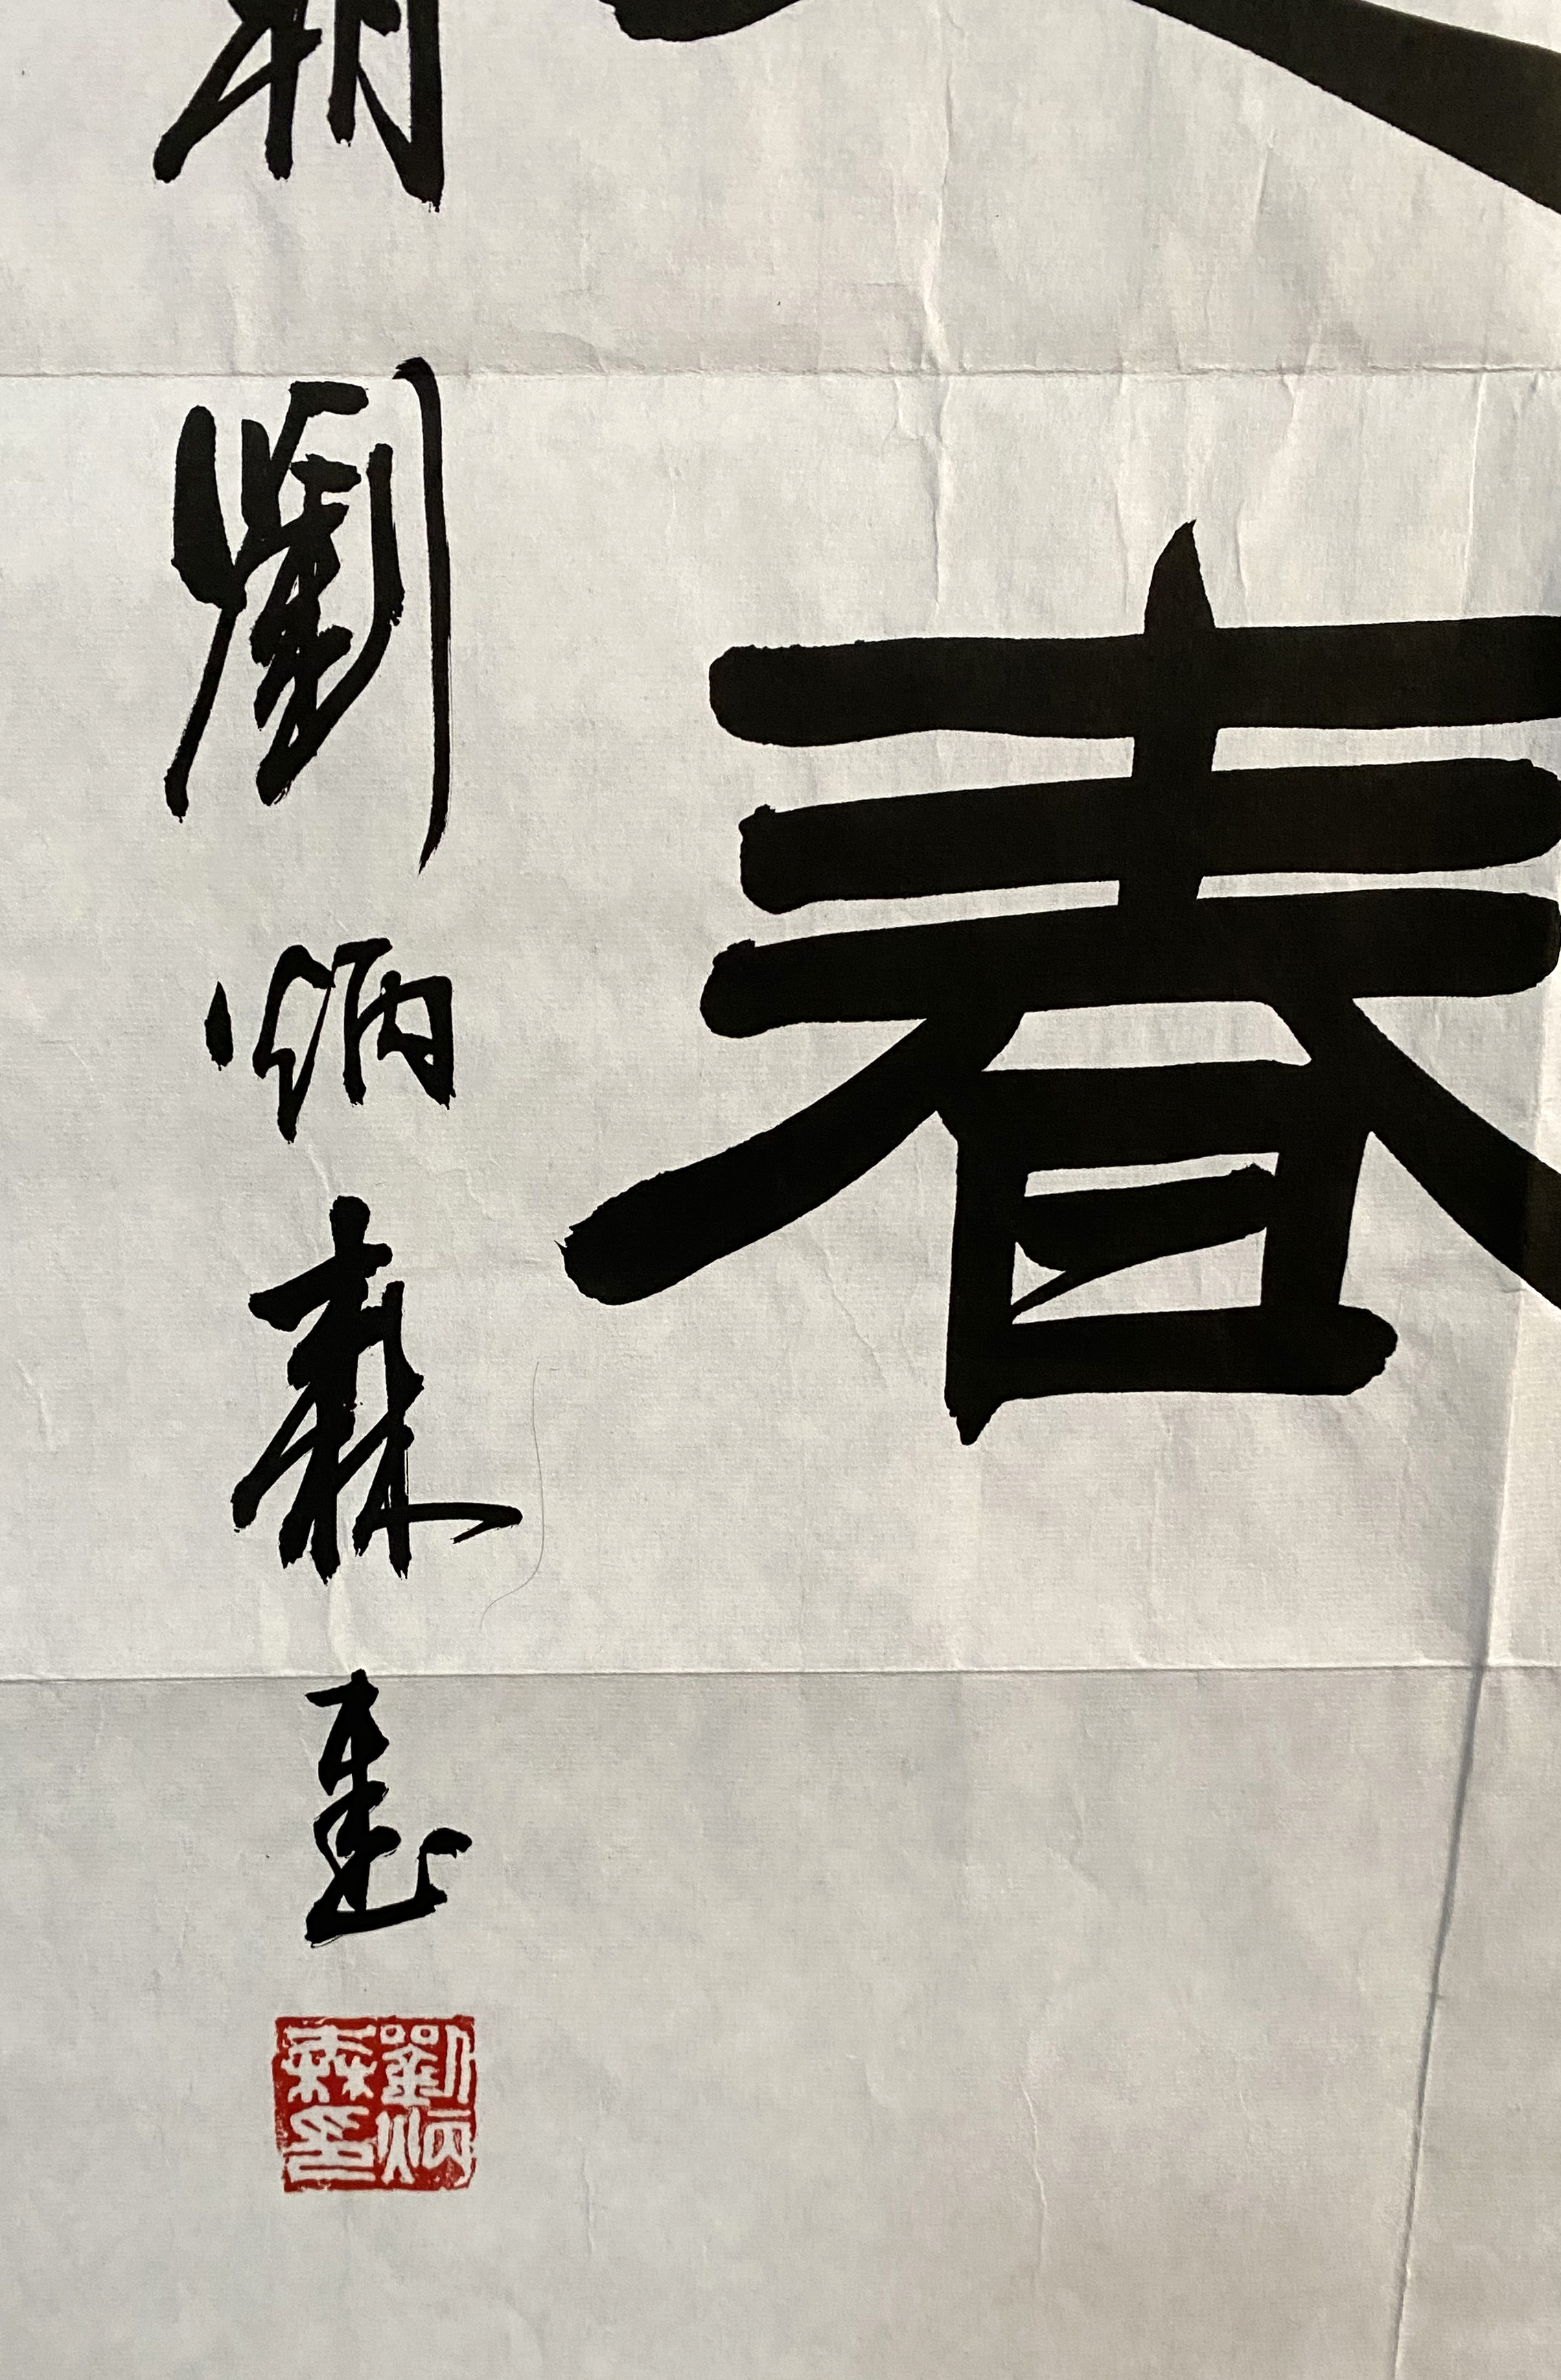 春
劉炳森書
劉炳森印